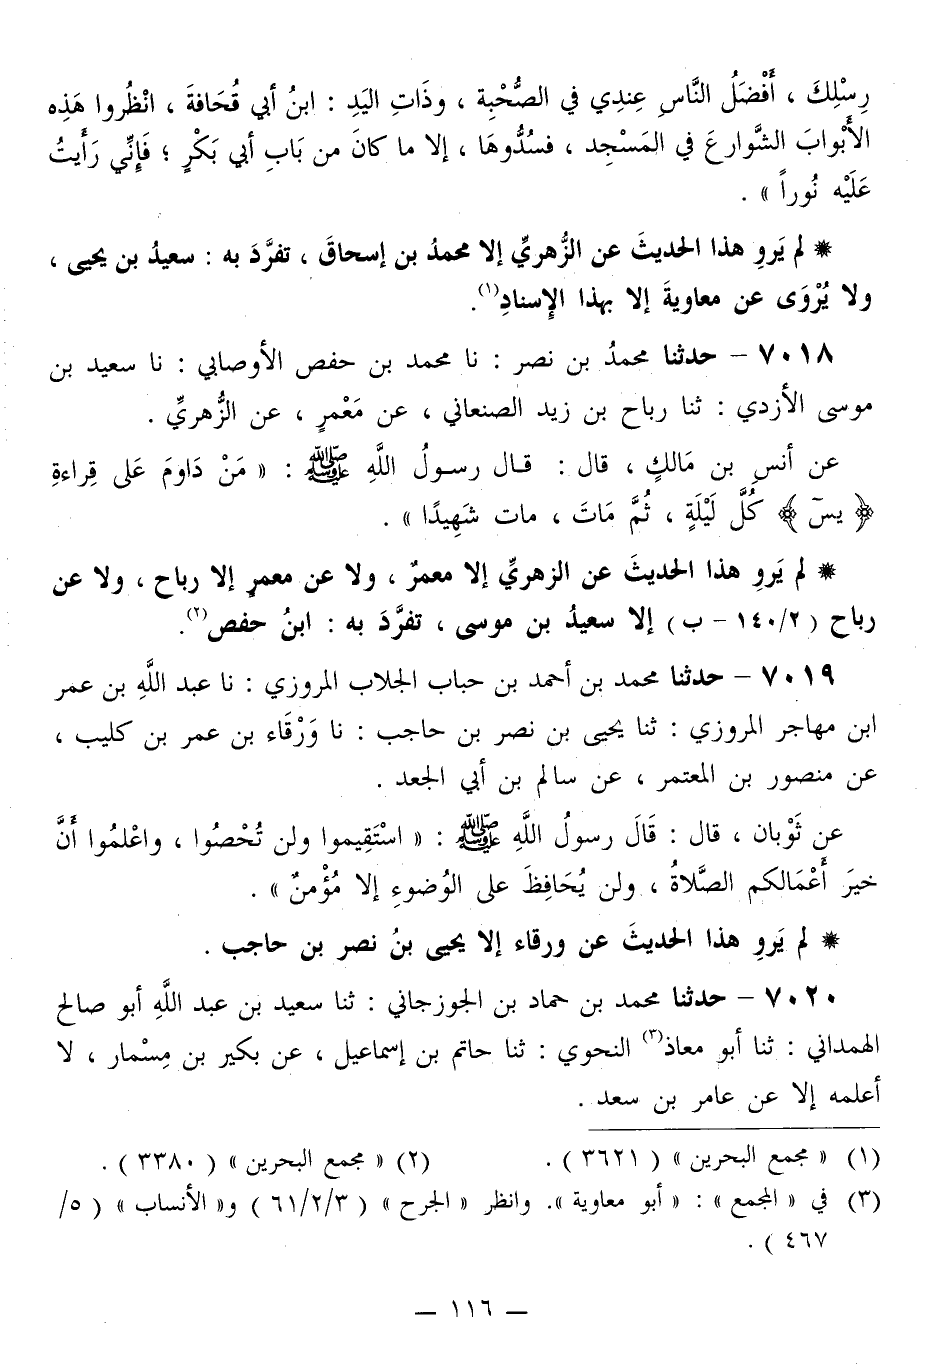 رِسْلِكَ ، أَفْضَلُ النَّاسِ عِندِي في الصُّحْبِة ، وذَاتِ اليَدِ : ابنُ أبي قُحَافةَ ، انْظُروا هَذِه
الأَبْوابَ الشَّوارِعَ في المَسْجِد ، فسُدُّوهَا ، إلا ما كانَ من بَابِ أبي بَكْرٍ ؛ فَإِنِّي رَأَيتُ
عَلَيْه نُوراً » .
* لم يَروِ هذا الحديثَ عن الزُّهريِّ إلا محمدُ بن إسحاقَ ، تفرَّدَ به : سعيدُ بن يحيى ،
ولا يُرْوَى عن معاويةَ إلا بهذا الإِسنادِ(١).
٧٠١٨ – حدثنا محمدُ بن نصر : نا محمد بن حفص الأوصابي : نا سعيد بن
موسى الأزدي : ثنا رباح بن زيد الصنعاني ، عن مَعْمرٍ ، عن الزُّهريِّ .
عن أنسِ بن مَالكٍ ، قال : قال رسولُ اللَّهِ ﷺ : « مَنْ دَاومَ عَلى قِراءةِ
﴿ يسَ ﴾ كُلَّ لَيْلَةٍ ، ثُمَّ مَاتَ ، مات شَهِيدًا » .
* لم يَروِ هذا الحديثَ عن الزهريِّ إلا معمرٌ ، ولا عن معمرٍ إلا رباح ، ولا عن
رباح ( ١٤٠/٢ – ب ) إلا سعيدُ بن موسى ، تفرَّدَ به : ابنُ حفص(٢).
٧٠١٩ – حدثنا محمد بن أحمد بن حباب الجلاب المروزي : نا عبد اللَّهِ بن عمر
ابن مهاجر المروزي : ثنا يحيى بن نصر بن حاجب : نا وَرْقَاء بن عمر بن كليب ،
عن منصور بن المعتمر ، عن سالم بن أبي الجعد .
عن ثَوْبان ، قال : قَالَ رسولُ اللَّهِ ﷺ : « اسْتَقِيموا ولن تُحْصُوا ، واعْلمُوا أَنَّ
خيرَ أَعْمَالكم الصَّلاةُ ، ولن يُحَافِظَ على الوُضوءِ إلا مُؤْمنٌ » .
* لم يَروِ هذا الحديثَ عن ورقاء إلا يحيى بنُ نصر بن حاجب .
٧٠٢٠ – حدثنا محمد بن حماد بن الجوزجاني : ثنا سعيد بن عبد اللَّهِ أبو صالح
الهمداني : ثنا أبو معاذ(٣) النحوي : ثنا حاتم بن إسماعيل ، عن بكير بن مِسْمار ، لا
أعلمه إلا عن عامر بن سعد .
(١) « مجمع البحرين » ( ٣٦٢١ ) . (٢) « مجمع البحرين » ( ٣٣٨٠ ) .
(٣) في « المجمع » : « أبو معاوية ». وانظر « الجرح » ( ٦١/٢/٣ ) و« الأنساب » ( ٥/
٤٦٧ ) .
— ١١٦ —